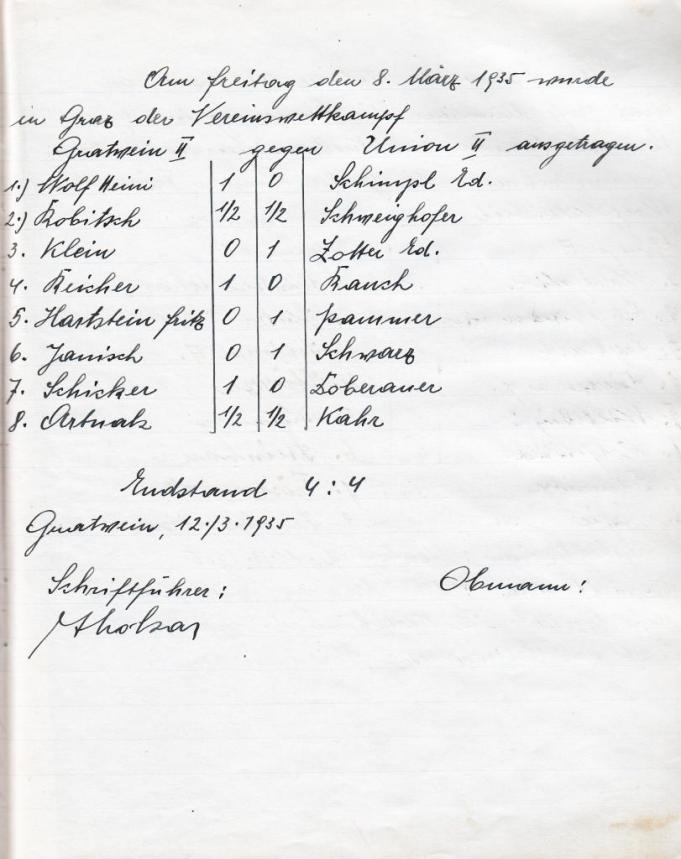 Am Freitag den 8. März 1935 wurde
in Graz der Vereinswettkampf
Gratwein II gegen Union II ausgetragen.
1.) Wolf Heini 1 0 Schimpl Ed.
2.) Kobitsch 1/2 1/2 Schwenghofer
3. Klein 0 1 Zotter Ed.
4. Reicher 1 0 Rauch
5. Hartstein Fritz 0 1 Pammer
6. Janisch 0 1 Schwarz
7. Schicker 1 0 Loberauer
8. Artnak 1/2 1/2 Kahr
Endstand 4 : 4
Gratwein, 12./3. 1935
Schriftführer: Obmann: